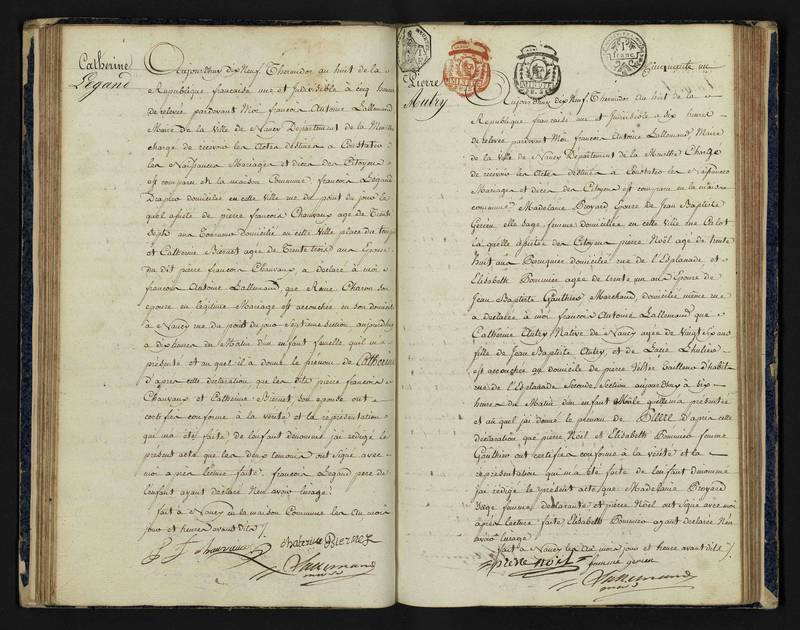 Catherine
Legand
Aujourdhuy dix Neuf Thermidor au huit de la
Republique française une et Indivisible à cinq heures
de relevée pardevant Moi françois Antoine Lallemand
Maire de la Ville de Nancy Département de la
charge de recevoir les actes destinés a Constater
les Naissances Mariages et décès des Citoyens
est comparu en la maison Commune, françois Legand
Drapier domicilié en cette ville rue du point du jour le
quel assisté de pierre françois Chauvaux agé de Trente
Sept ans domicilié en cette ville place du
et Catherine Biernet agée de Trente trois ans Epouse
du dit pierre françois Chauvaux, a déclaré à moi
françois Antoine Lallemand, que Reine Charon son
epouse en legitime Mariage est accouchée en son domicile
à Nancy rue du point du jour Septieme Section aujourdhuy
à dix heures du Matin d'un enfant femelle quil m'a
présenté et au quel il a donné le prénom de Catherine
d'après cette déclaration que les dits pierre françois
Chauvaux et Catherine Biernet son epouse ont
certifié conforme à la vérité et la représentation
qui m'a été faite de l'enfant denommé, jai redigé le
présent acte que les deux temoins ont signé avec
moi après lecture faite, françois Legand pere de
l'enfant ayant déclaré N'en avoir l'usage.
fait à Nancy en la maison Commune les an mois
jour et heures avant dits
Chauvaux Chaterine Biernet
Lallemand
maire
Pierre
Autry
MINUTE
MINUTE
1
franc
Cinquante un
Aujourdhuy dix Neuf Thermidor au huit de la
Republique française une et Indivisible à six heures
de relevée pardevant Moi françois Antoine Lallemand Maire
de la ville de Nancy Département de la Meurthe Chargé
de recevoir les actes destinés à Constater les Naissances
Mariages et décès des Citoyens est comparu en la maison
commune Madelaine Broyard Epouse de Jean Baptiste
Gerien, elle sage femme domiciliée en cette ville rue
la quelle assistée des Citoyens pierre Noël agé de trente
huit ans domicilié rue de l'Esplanade et
Elisabeth Pommier agée de trente un ans Epouse de
Jean Baptiste Gauthier Marchand, domiciliée même rue
a déclaré à moi françois Antoine Lallemand que
Catherine Autry Native de Nancy agée de Vingt ans
fille de Jean Baptiste Autry, et de Lhuliere
est accouchée au domicile de pierre d'habit
rue de l'Esplanade Seconde Section aujourdhuy a dix
heures du Matin d'un enfant Mâle quelle m'a présenté
et au quel jai donné le prenom de Pierre d'après cette
déclaration que pierre Noël et Elisabeth Pommier femme
Gauthier ont certifiée conforme à la vérité et la
représentation qui m'a été faite de l'enfant denommé
jai redigé le présent acte que Madelaine Broyard
sage femme déclarante et pierre Noël ont signé avec moi
après lecture faite, Elisabeth Pommier ayant déclaré N'en
avoir l'usage.
fait à Nancy les an mois jour et heure avant dits
pierre noël femme gerien
Lallemand
maire